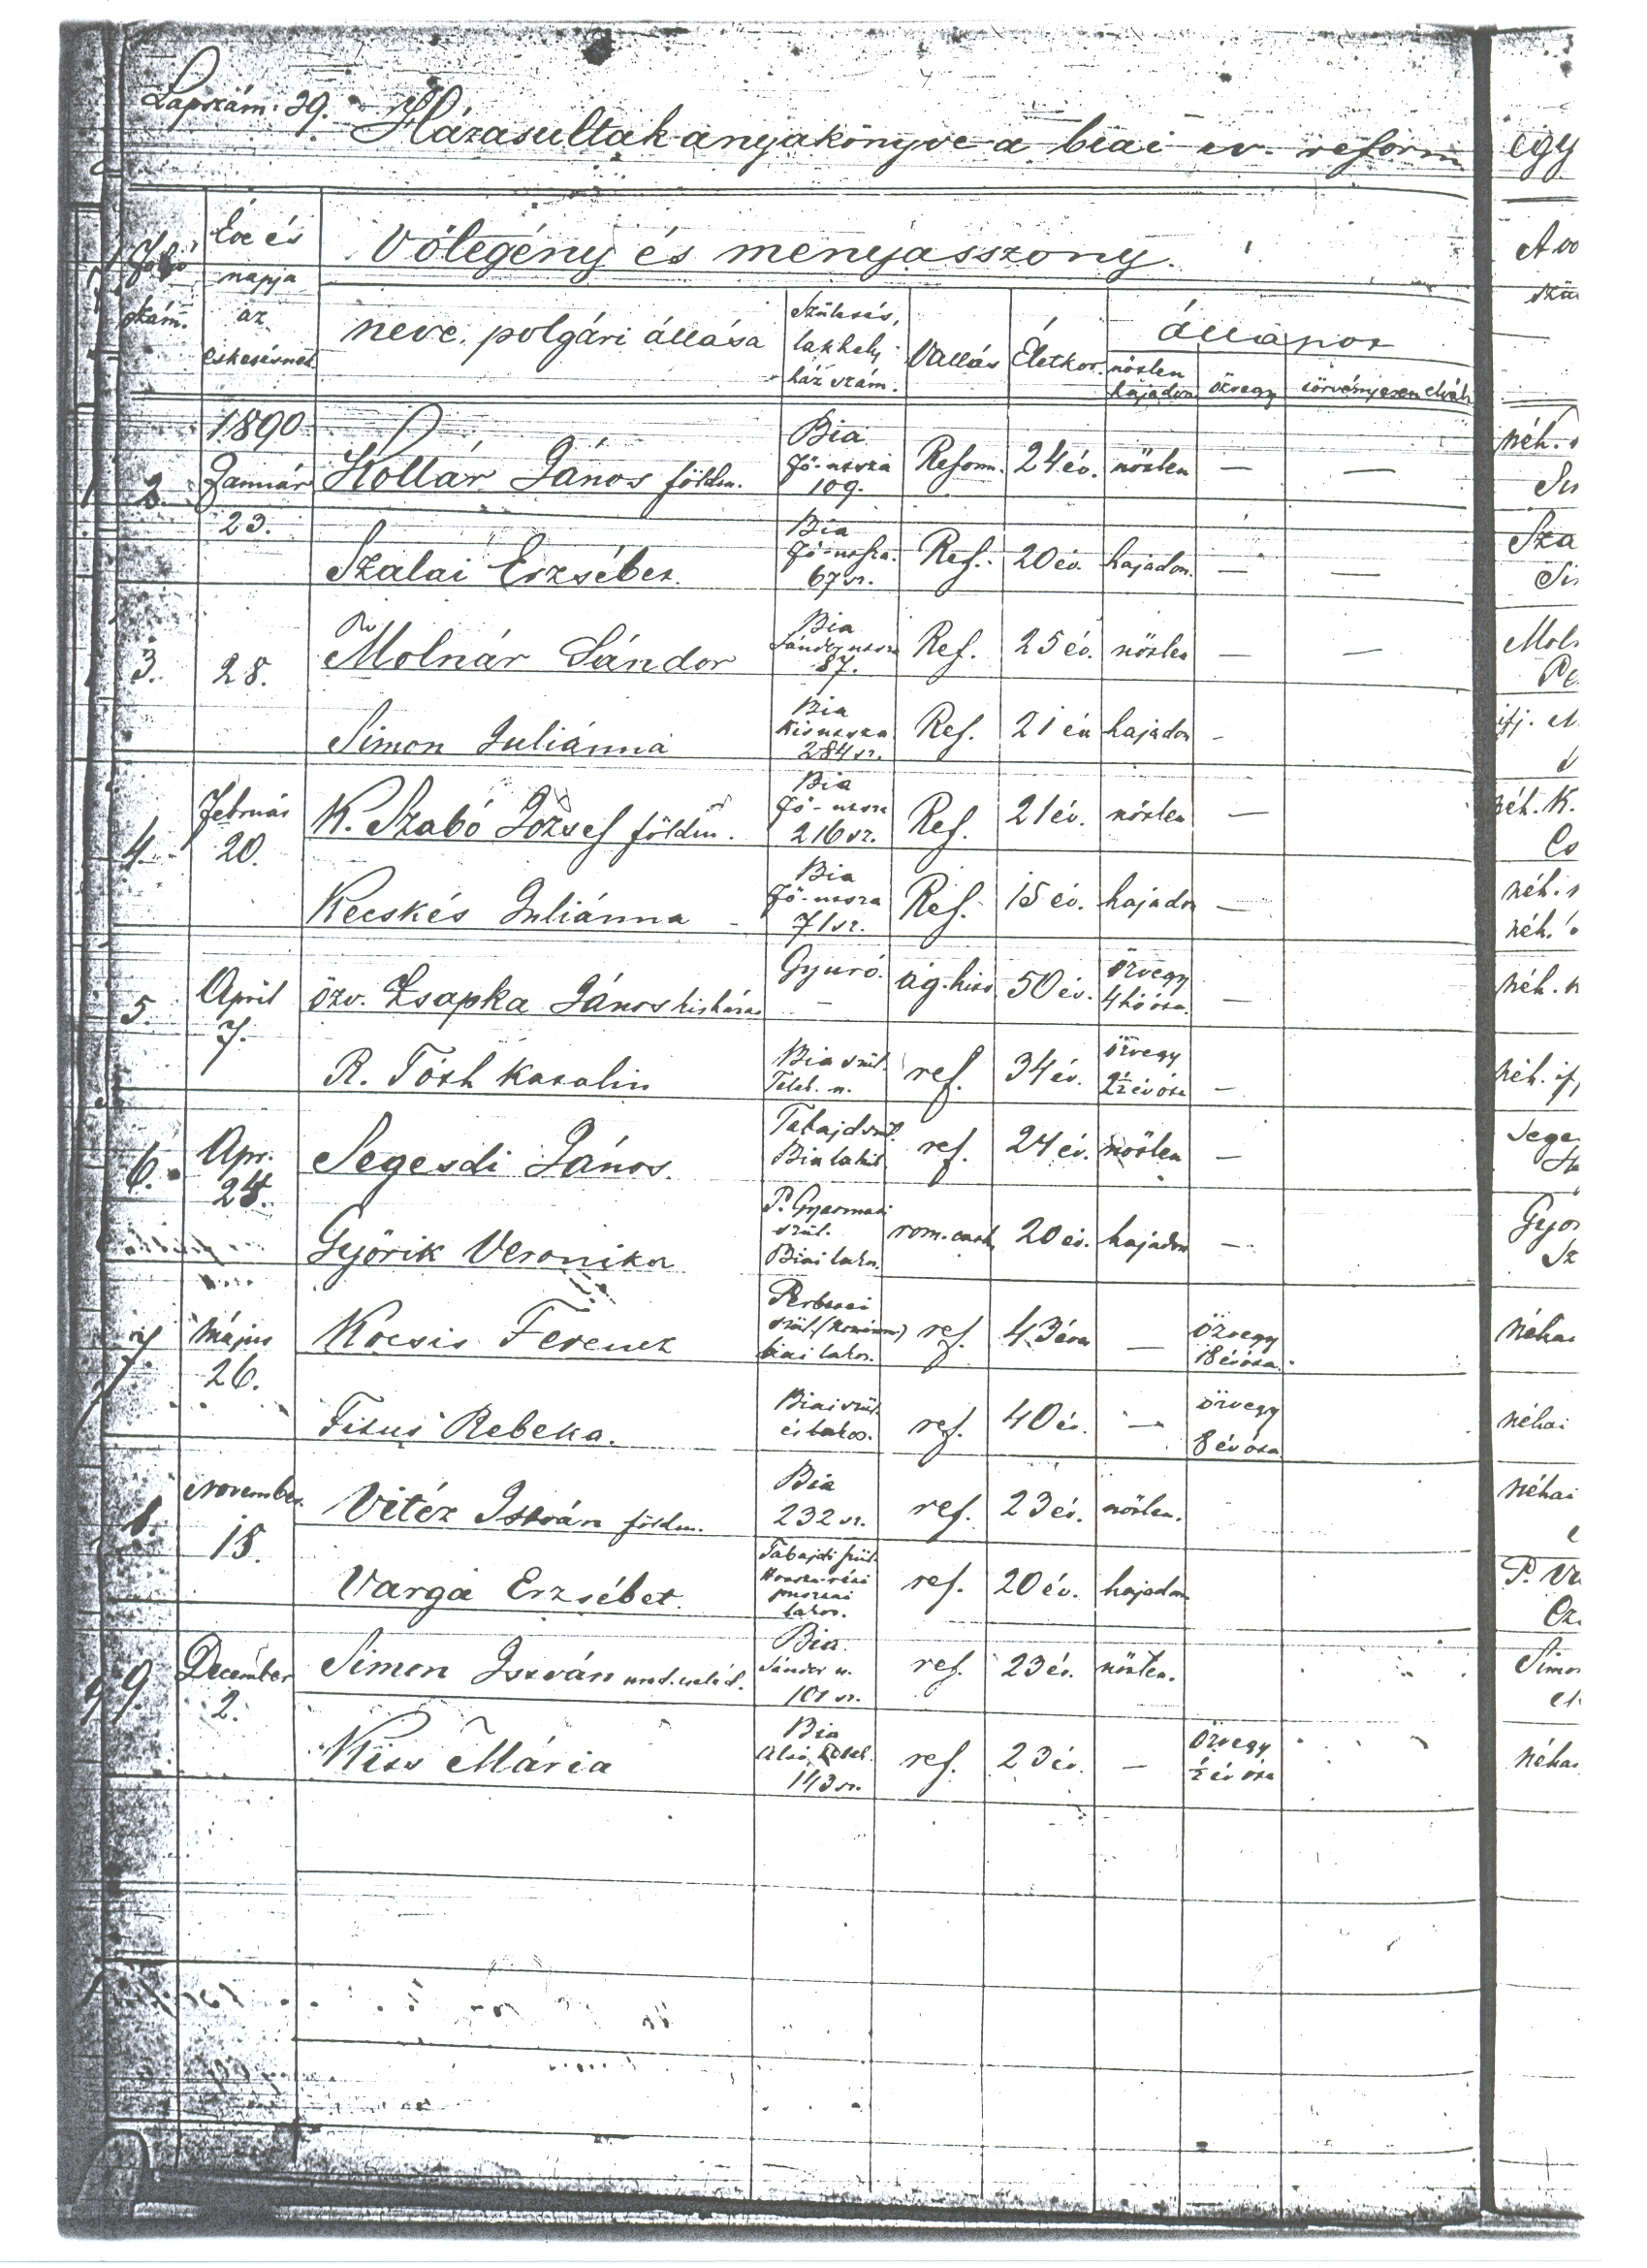 Lapszám: 29.
Házasultak anyakönyve a biai ev. reform. egy
Folyó szám.
Éve és napja az esketésnek
Vőlegény és menyasszony.
neve, polgári állása
Születés, lakhely, ház szám.
Vallás
Életkor.
állapot
nőtlen hajadon
özvegy
törvényesen elvált
1890
2. Január 23. Kollár János földm. Bia Fő-utcza 109. Reform. 24 év. nőtlen — —
Szalai Erzsébet. Bia Fő-utcza. 67 sz. Ref. 20 év. hajadon. — —
3. 28. Molnár Sándor Bia Sándor utcza 87. Ref. 25 év. nőtlen — —
Simon Juliánna Bia Kis utcza 284 sz. Ref. 21 év hajadon -
4. Február 20. K. Szabó József földm. Bia Fő-utcza 216 sz. Ref. 21 év. nőtlen —
Kecskés Juliánna Bia Fő-utcza 71 sz. Ref. 15 év. hajadon —
5. April 7. özv. Zsapka János kisházas Gyuró. — ág. hitv. 50 év. özvegy 4 hó óta. —
R. Tóth Katalin Bia szül. Telek. u. ref. 34 év. özvegy 2½ év óta —
6. Apr. 24. Segesdi János. Tabajd szül. Bia lakik ref. 24 év. nőtlen —
Györik Veronika P. Gyarmati szül. Biai lakos. rom. cath. 20 év. hajadon —
7 Május 26. Kocsis Ferencz szül. biai lakos. ref. 43 éves — özvegy 18 év óta.
Titus Rebeka. Biai szül. és lakos. ref. 40 év. — özvegy 8 év óta
8. November 15. Vitéz István földm. Bia 232 sz. ref. 23 év. nőtlen.
Varga Erzsébet. Tabajdi szül. pusztai lakos. ref. 20 év. hajadon
9. December 2. Simon István Bia Sándor u. 101 sz. ref. 23 év. nőtlen.
Kiss Mária Bia Alsó Telek. 143 sz. ref. 23 év. — özvegy ½ év óta
A vő
néh.
Sza
Si
Mol
Pe
ifj.
néh. K.
Cs
néh.
néh.
néh.
néh. ifj
Sege
Győr
Sz
néhai
néhai
néhai
P. Va
Simo
néhai